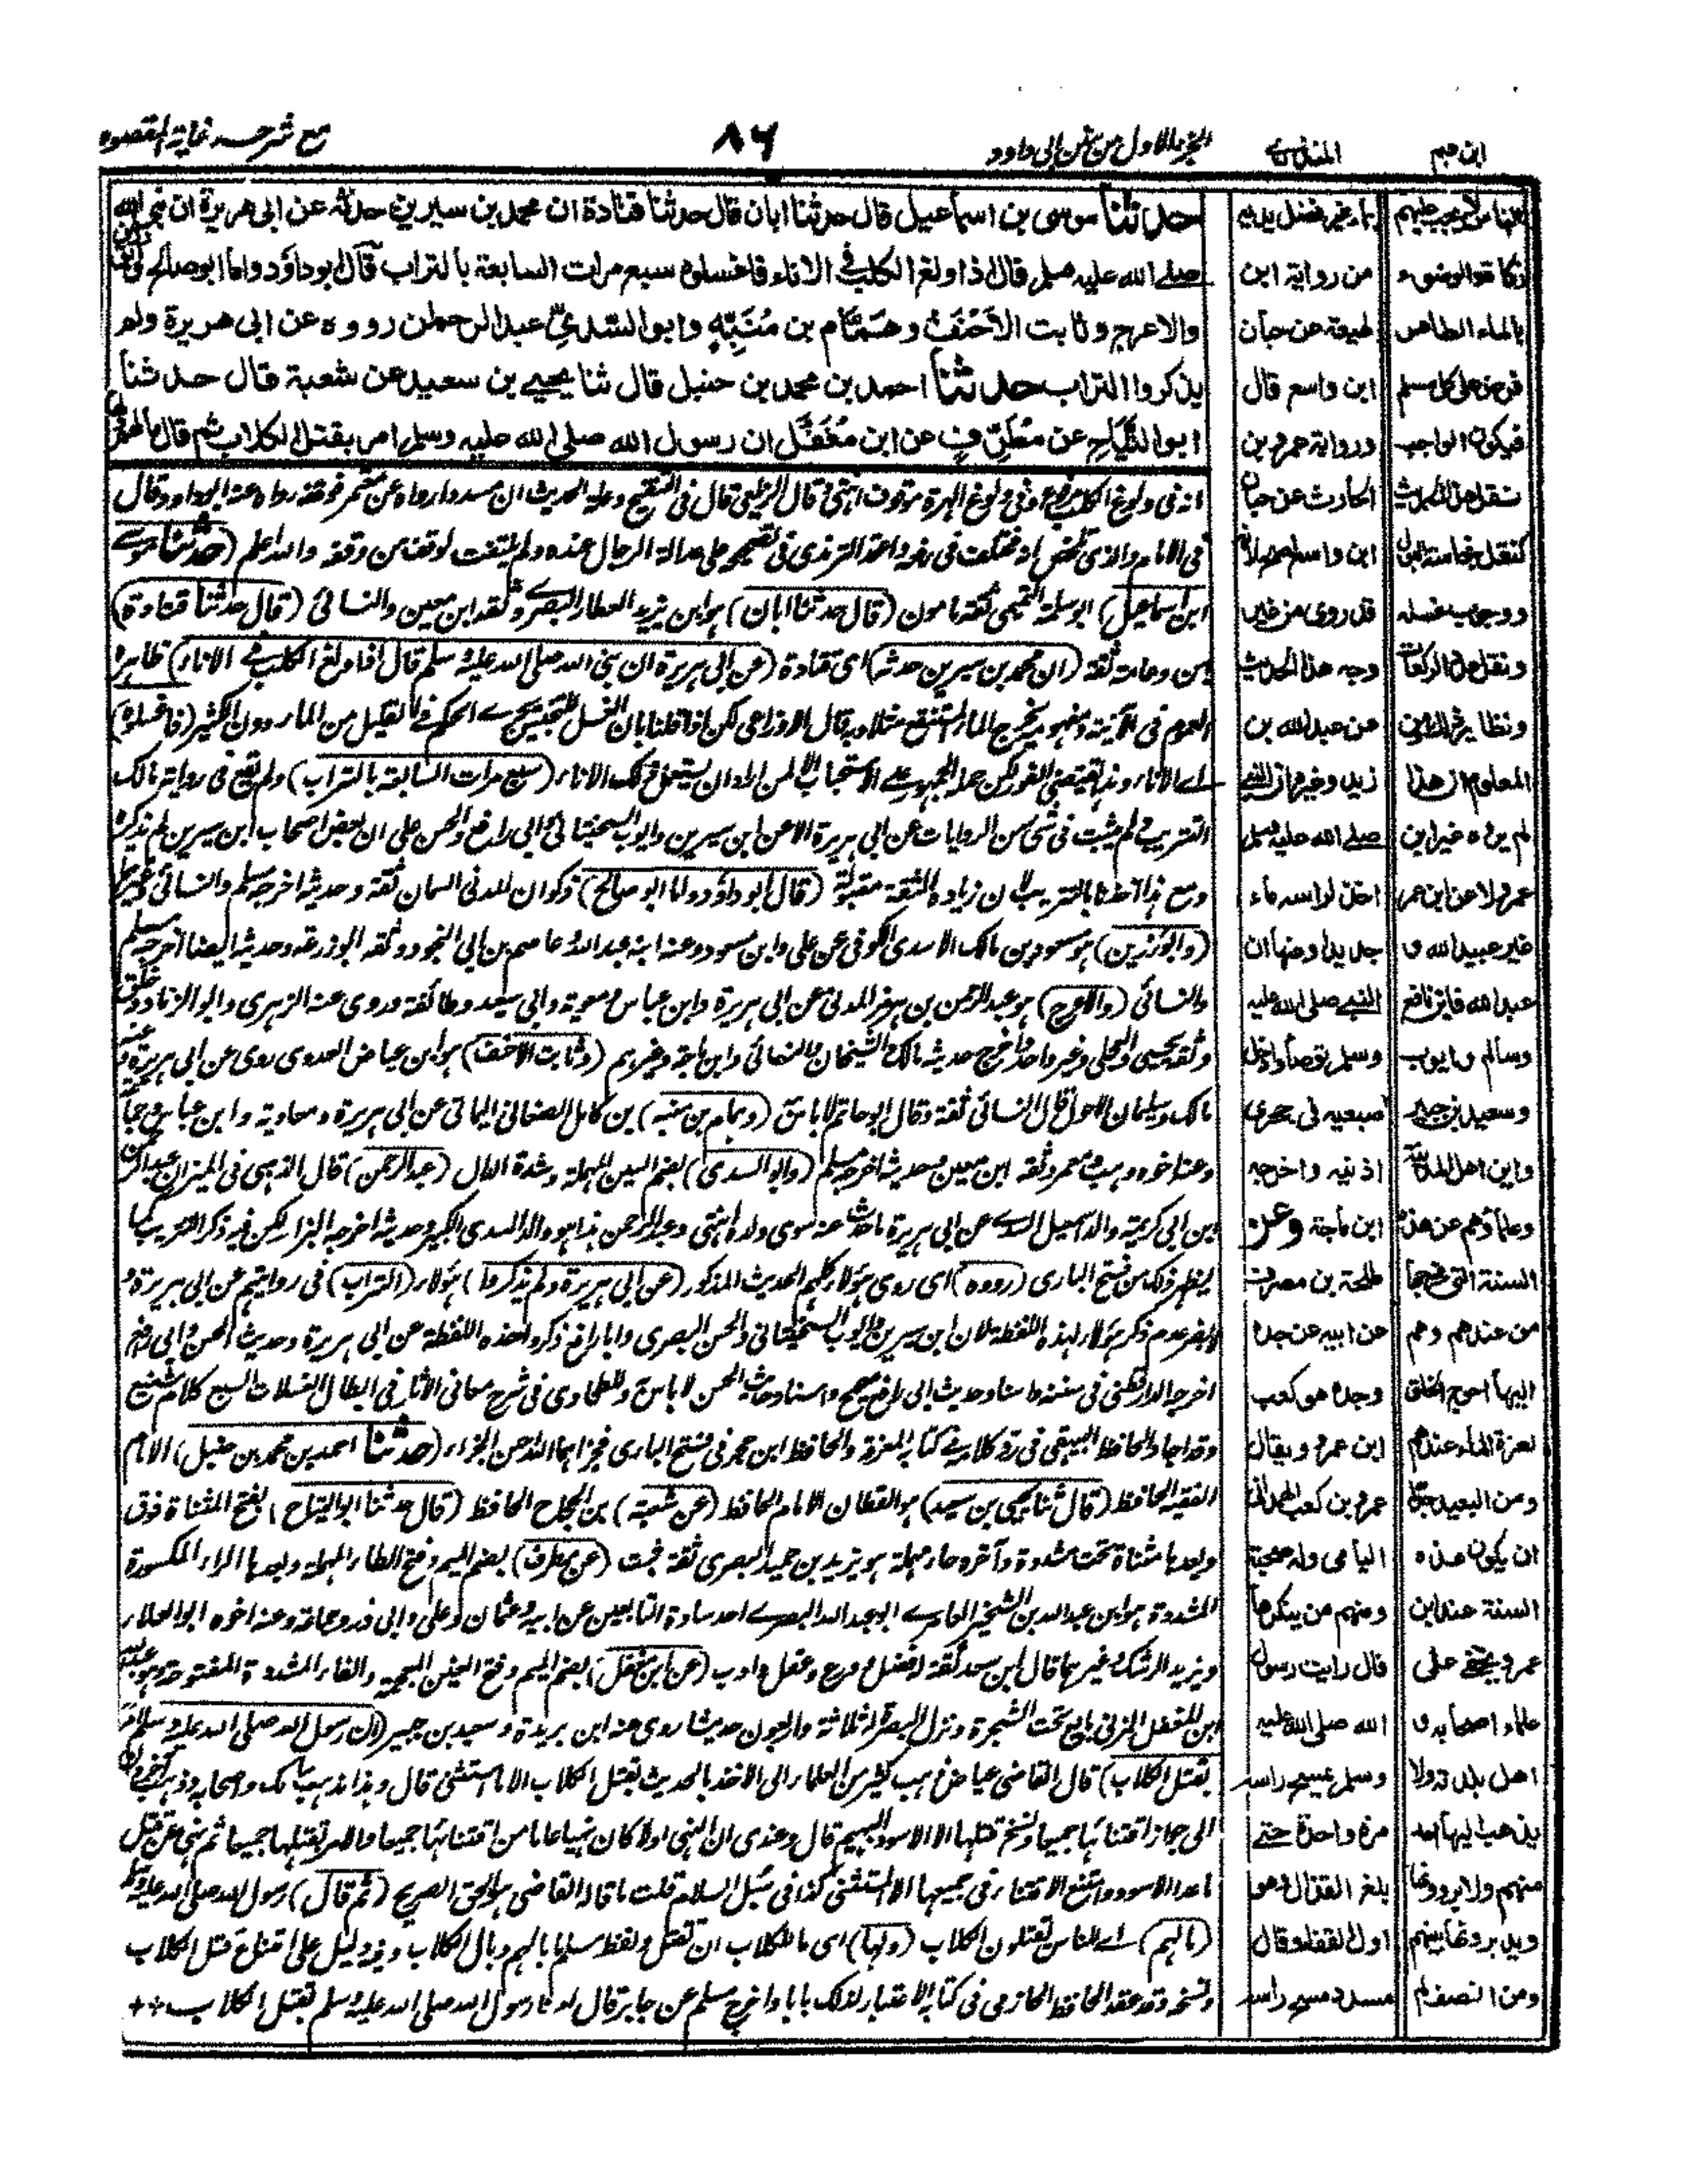 ابن قيم
المنذري
الجزء الاول من سنن ابى داود
٨٦
مع شرحه غاية المقصود
حدثنا موسى بن اسماعيل قال حدثنا ابان قال حدثنا قتادة ان محمد بن سيرين حدثه عن ابى هريرة ان نبى الله
صلى الله عليه وسلم قال اذا ولغ الكلب فى الاناء فاغسلوه سبع مرات السابعة بالتراب قال ابوداؤد واما ابو صالح وابو رزين
والاعرج وثابت الاَحْنَفُ وهَمَّام بن مُنَبِّهٍ وابو السُّدىِّ عبد الرحمٰن رووه عن ابى هريرة ولم
يذكروا التراب حدثنا احمد بن محمد بن حنبل قال ثنا يحيى بن سعيد عن شعبة قال حدثنا
ابو التَّيَّاحِ عن مُطَرِّفٍ عن ابن مُغَفَّل ان رسول الله صلى الله عليه وسلم امر بقتل الكلاب ثم قال مالهم ولها
انه فى ولوغ الكلب مرفوع وفى ولوغ الهرة موقوف انتهى قال الزيلعى قال فى التنقيح وعلة الحديث ان مسددا رواه عن معتمر فوقفه رواه عنه ابوداود وقال
فى الامام والذى تلخص انه مختلف فى رفعه واعتمد الترمذى فى تصحيحه على عدالة الرجال عنده ولم يلتفت لوقف من وقفه والله اعلم (حدثنا موسى
ابن اسماعيل) ابو سلمة التميمى ثقة مامون (قال حدثنا ابان) هو ابن يزيد العطار البصرى وثقه ابن معين والنسائى (قال حدثنا قتادة)
ابن دعامة ثقة (ان محمد بن سيرين حدثه) اى قتادة (عن ابى هريرة ان نبى الله صلى الله عليه وسلم قال اذا ولغ الكلب فى الاناء) ظاهره
العموم فى الآنية ومفهومه يخرج الماء المستنقع مثلا وبه قال الاوزاعى لكن اذا قلنا بان الغسل للتنجيس يجرى الحكم فى القليل من الماء دون الكثير (فاغسلوه)
اى الاناء وهذا يقتضى الفور لكن حمله الجمهور على الاستحباب الا لمن اراد ان يستعمل ذلك الاناء (سبع مرات السابعة بالتراب) ولم يقع فى رواية مالك
التتريب ولم يثبت فى شىء من الروايات عن ابى هريرة الا عن ابن سيرين وايوب السختيانى وابى رافع والحسن على ان بعض اصحاب ابن سيرين لم يذكره
ومع هذا اخذنا بالتتريب لان زيادة الثقة مقبولة (قال ابو داؤد واما ابو صالح) ذكوان المدنى السمان ثقة وحديثه اخرجه مسلم والنسائى وغيرهما
(وابو رزين) هو مسعود بن مالك الاسدى الكوفى عن على وابن مسعود وعنه ابنه عبد الله وعاصم بن ابى النجود وثقه ابو زرعة وحديثه ايضا اخرجه مسلم
والنسائى (والاعرج) هو عبد الرحمن بن هرمز المدنى عن ابى هريرة وابن عباس ومعوية وابى سعيد وطائفة وروى عنه الزهرى وابو الزناد وخلق
وثقه يحيى والعجلى وغير واحد واخرج حديثه مالك والشيخان والنسائى وابن ماجة وغيرهم (وثابت الاحنف) هو ابن عياض العدوى روى عن ابى هريرة وعنه
مالك وسليمان الاحول قال النسائى ثقة وقال ابو حاتم لا باس به (وهمام بن منبه) بن كامل الصنعانى اليمانى عن ابى هريرة ومعاوية وابن عباس
وعنه اخوه وهب ومعمر وثقه ابن معين وحديثه اخرجه مسلم (وابو السدى) بضم السين المهملة وشدة الدال (عبد الرحمن) قال الذهبى فى الميزان عبد الرحمن
بن ابى كريمة والد اسمعيل السدى عن ابى هريرة ما حدث عنه سوى ولده انتهى وعبد الرحمن هذا هو والد السدى الكبير وحديثه اخرجه البزار لكن فيه ذكر التتريب كما
يظهر ذلك من فتح البارى (رووه) اى روى هؤلاء كلهم الحديث المذكور (عن ابى هريرة ولم يذكروا) هؤلاء (التراب) فى روايتهم عن ابى هريرة و
لا يضر عدم ذكر هؤلاء لهذه اللفظة لان ابن سيرين وايوب السختيانى والحسن البصرى وابا رافع ذكروا هذه اللفظة عن ابى هريرة وحديث الحسن وابى رافع
اخرجه الدارقطنى فى سننه واسناد حديث ابى رافع صحيح واسناد حديث الحسن لا باس به وللطحاوى فى شرح معانى الآثار فى ابطال الغسلات السبع كلام شنيع
وقد اجاد الحافظ البيهقى فى رد كلامه فى كتابه المعرفة والحافظ ابن حجر فى فتح البارى فجزاهما الله احسن الجزاء (حدثنا احمد بن محمد بن حنبل) الامام
الفقيه الحافظ (قال ثنا يحيى بن سعيد) هو القطان الامام الحافظ (عن شعبة) بن الحجاج الحافظ (قال حدثنا ابو التياح) بفتح المثناة فوق
وبعدها مثناة تحت مشددة وآخره حاء مهملة هو يزيد بن حميد البصرى ثقة ثبت (عن مطرف) بضم الميم وفتح الطاء المهملة وبعدها الراء المكسورة
المشددة هو ابن عبد الله بن الشخير العامرى ابو عبد الله البصرى احد سادة التابعين عن ابيه وعثمان وعلى وابى ذر وجماعة وعنه اخوه ابو العلاء
ويزيد الرشك وغيرهما قال ابن سعد ثقة له فضل وورع وعقل وادب (عن ابن مغفل) بضم الميم وفتح الغين المعجمة والفاء المشددة المفتوحة هو عبد الله
ابن المغفل المزنى بايع تحت الشجرة ونزل البصرة له ثلاثة واربعون حديثا روى عنه ابن بريدة وسعيد بن جبير (ان رسول الله صلى الله عليه وسلم امر
بقتل الكلاب) قال القاضى عياض ذهب كثير من العلماء الى الاخذ بالحديث بقتل الكلاب الا ما استثنى قال وهذا مذهب مالك واصحابه وذهب آخرون
الى جواز اقتنائها جميعا ونسخ قتلها الا الاسود البهيم قال وعندى ان النهى اولا كان نهيا عاما من اقتنائها جميعا والامر بقتلها جميعا ثم نهى عن قتل
ما عدا الاسود وامتنع الاقتناء فى جميعها الا المستثنى كذا فى سبل السلام قلت ما قاله القاضى هو الحق الصريح (ثم قال) رسول الله صلى الله عليه وسلم
(مالهم) اى للناس يقتلون الكلاب (ولها) اى ما للكلاب ان تقتل ولفظ مسلم ما بالهم وبال الكلاب وفيه دليل على امتناع قتل الكلاب
ونسخه وقد عقد الحافظ الحازمى فى كتابه الاعتبار لذلك بابا واخرج مسلم عن جابر قال امرنا رسول الله صلى الله عليه وسلم بقتل الكلاب
بماء غير فضل يديه
من رواية ابن
لهيعة عن حبان
ابن واسع قال
ورواية عمرو بن
الحارث عن حبان
ابن واسع
قد روى من غير
وجه هذا الحديث
عن عبد الله بن
زيد وغيره ان النبى
صلى الله عليه وسلم
اخذ لراسه ماء
جديدا ومنها ان
النبى صلى الله عليه
وسلم توضأ وادخل
اصبعيه فى جحرى
اذنيه واخرجه
ابن ماجة وعن
طلحة بن مصرف
عن ابيه عن جده
وجده هو كعب
ابن عمرو ويقال
عمرو بن كعب
اليامى وله صحبة
ومنهم من ينكرها
قال رايت رسول
الله صلى الله عليه
وسلم يمسح راسه
مرة واحدة حتى
بلغ القذال وهو
اول القفا وقال
مسدد مسح راسه
زكاة والوضوء
بالماء الطاهر
فرض على كل مسلم
فيكون الواجب
نقل هذا الحديث
كنقل نجاسة البول
ووجوب غسله
ونقل عدد الركعات
ونظائر ذلك
المعلوم ان هذا
لم يروه غير ابن
عمر ولا عن ابن عمر
غير عبيد الله و
عبد الله فاين نافع
وسالم وايوب
وسعيد بن جبير
واين اهل المدينة
وعلماؤهم عن هذه
السنة التى مخرجها
من عندهم وهم
اليها احوج الخلق
لعزة الماء عندهم
ومن البعيد جدا
ان يكون هذه
السنة عند ابن
عمر وتخفى على
علماء اصحابه و
اهل بلدته ولا
يذهب اليها احد
منهم ولا يروونها
ويديرونها بينهم
ومن انصف لم